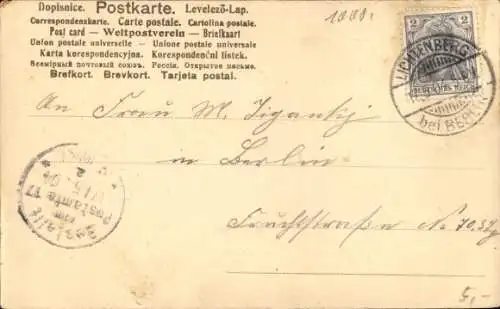 Dopisnice. Postkarte. Levelező-Lap.
Correspondenskarte. Carte postale. Cartolina postale.
Post card — Weltpostverein — Briefkaart
Union postale universelle — Unione postale universale
Karta korespondencyjna. Korespondenční lístek.
Всемірный почтовый союзъ. Россія. Открытое письмо.
Brefkort. Brevkort. Tarjeta postal.
1000.
2 2
DEUTSCHES REICH
LICHTENBERG
bei BERLIN
An Frau M. Jigantz
in Berlin
Fruchtstraße No 70.
Bestellt
vom
Postamte 17
5,-